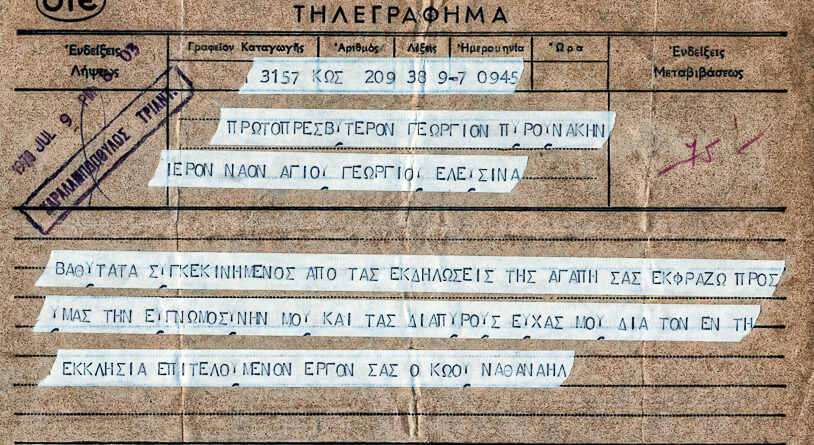 ΟΤΕ
ΤΗΛΕΓΡΑΦΗΜΑ
Ἐνδείξεις Λήψεως
Γραφεῖον Καταγωγῆς Ἀριθμὸς Λέξεις Ἡμερομηνία Ὥρα
Ἐνδείξεις Μεταβιβάσεως
3157 ΚΩΣ 209 38 9-7 0945
ΠΡΩΤΟΠΡΕΣΒΥΤΕΡΟΝ ΓΕΩΡΓΙΟΝ ΠΥΡΟΥΝΑΚΗΝ
ΙΕΡΟΝ ΝΑΟΝ ΑΓΙΟΥ ΓΕΩΡΓΙΟΥ ΕΛΕΥΣΙΝΑ
JUL 9
ΤΡΙΑΝΤ.
75 -
ΒΑΘΥΤΑΤΑ ΣΥΓΚΕΚΙΝΗΜΕΝΟΣ ΑΠΟ ΤΑΣ ΕΚΔΗΛΩΣΕΙΣ ΤΗΣ ΑΓΑΠΗ ΣΑΣ ΕΚΦΡΑΖΩ ΠΡΟΣ
ΥΜΑΣ ΤΗΝ ΕΥΓΝΩΜΟΣΥΝΗΝ ΜΟΥ ΚΑΙ ΤΑΣ ΔΙΑΠΥΡΟΥΣ ΕΥΧΑΣ ΜΟΥ ΔΙΑ ΤΟΝ ΕΝ ΤΗ
ΕΚΚΛΗΣΙΑ ΕΠΙΤΕΛΟΥΜΕΝΟΝ ΕΡΓΟΝ ΣΑΣ Ο ΚΩΟΥ ΝΑΘΑΝΑΗΛ